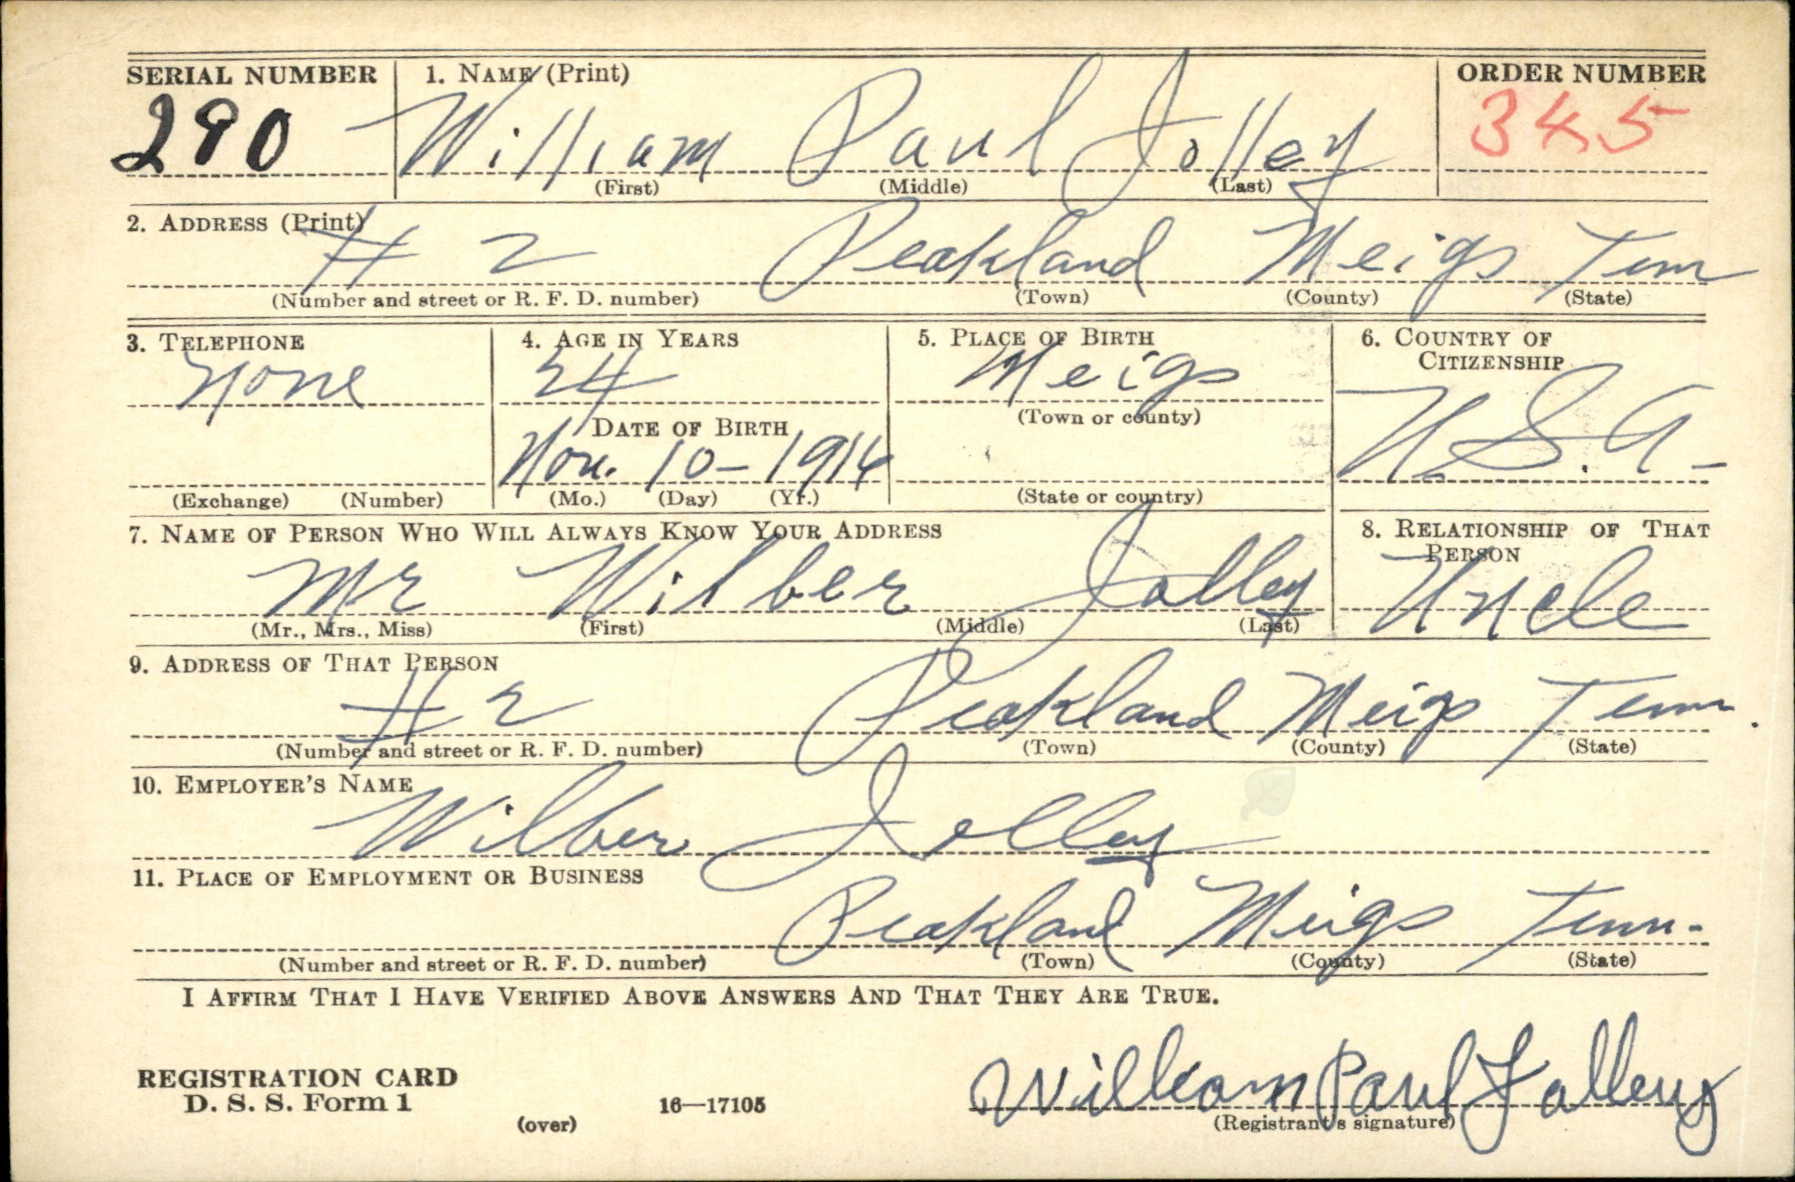 SERIAL NUMBER 1. NAME (Print) ORDER NUMBER
290 William Paul Jolley 345
(First) (Middle) (Last)
2. ADDRESS (Print)
# 2 Peakland Meigs Tenn
(Number and street or R. F. D. number) (Town) (County) (State)
3. TELEPHONE 4. AGE IN YEARS 5. PLACE OF BIRTH 6. COUNTRY OF CITIZENSHIP
None 24 Meigs U.S.A-
(Town or county)
DATE OF BIRTH
Nov. 10-1914
(Exchange) (Number) (Mo.) (Day) (Yr.) (State or country)
7. NAME OF PERSON WHO WILL ALWAYS KNOW YOUR ADDRESS 8. RELATIONSHIP OF THAT PERSON
Mr Wilber Jolley Uncle
(Mr., Mrs., Miss) (First) (Middle) (Last)
9. ADDRESS OF THAT PERSON
# 2 Peakland Meigs Tenn.
(Number and street or R. F. D. number) (Town) (County) (State)
10. EMPLOYER'S NAME
Wilber Jolley
11. PLACE OF EMPLOYMENT OR BUSINESS
Peakland Meigs Tenn.
(Number and street or R. F. D. number) (Town) (County) (State)
I AFFIRM THAT I HAVE VERIFIED ABOVE ANSWERS AND THAT THEY ARE TRUE.
REGISTRATION CARD
D. S. S. Form 1 16—17105 William Paul Jolley
(over) (Registrant's signature)